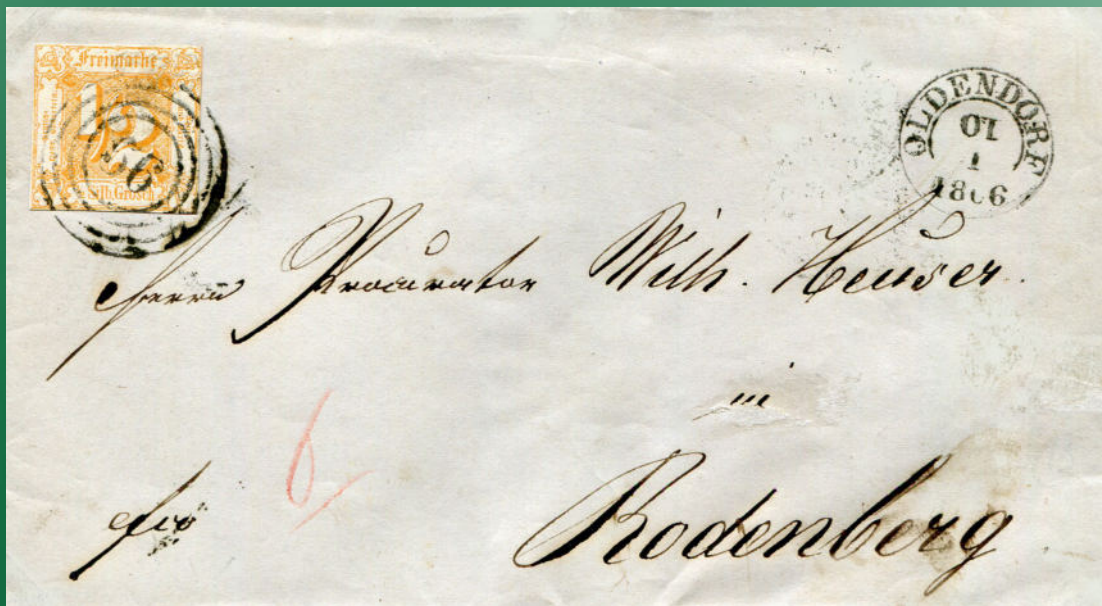 Freimarke
1/3
Silb. Grosch.
95
OLDENDORF
10
1
1866
Herrn Procurator Wilh. Heuser.
in
6
fco
Rodenberg